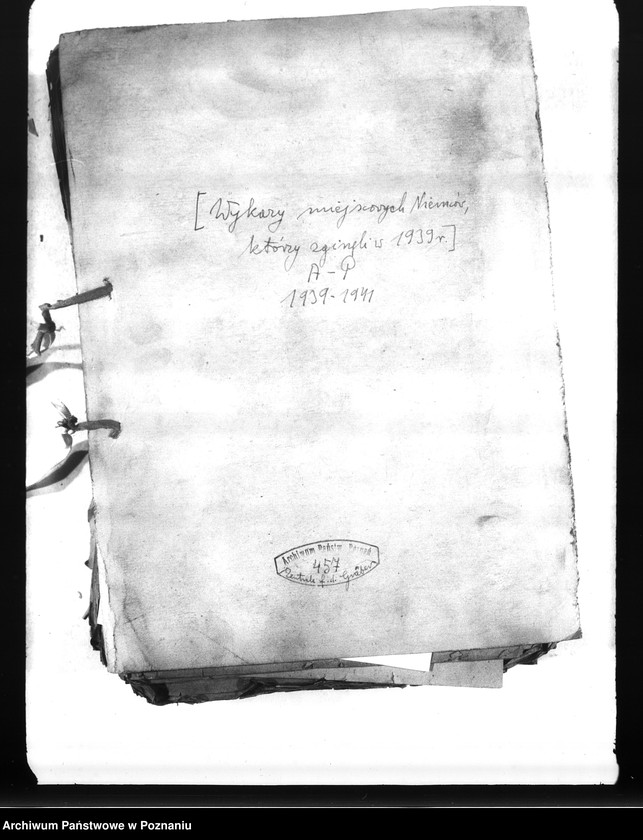 [Wykazy miejscowych Niemców,
którzy zginęli w 1939 r.]
A - P
1939 - 1941
Archiwum Państw. Poznań
457
Zentrale f. d. Gräber
Archiwum Państwowe w Poznaniu